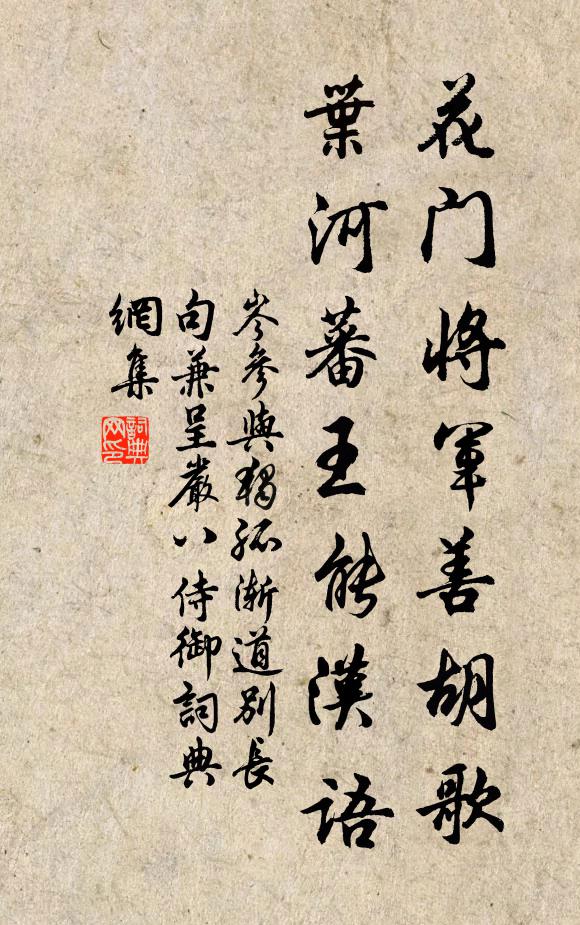 花门将军善胡歌
葉河蕃王能漢语
岑參與獨孤漸道別長
句兼呈嚴八侍御詞典
網集
詞典
网印